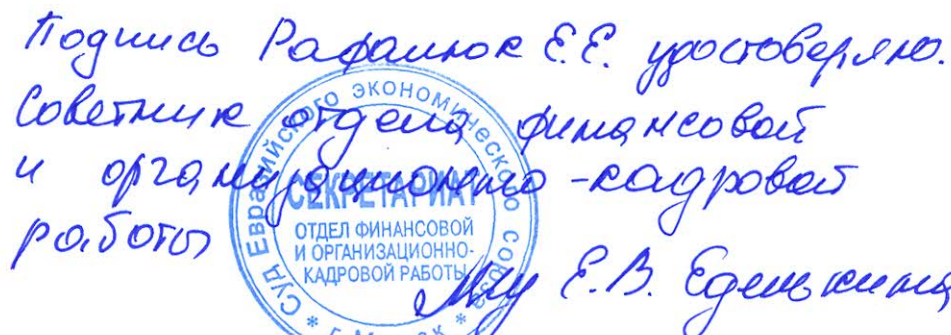 Подпись Рафалюк Е.Е. удостоверяю.
Советник отдела финансовой
и организационно-кадровой
работы
Е.В.
Суд Евразийского экономического союза
* г. Минск *
СЕКРЕТАРИАТ
ОТДЕЛ ФИНАНСОВОЙ
И ОРГАНИЗАЦИОННО-
КАДРОВОЙ РАБОТЫ